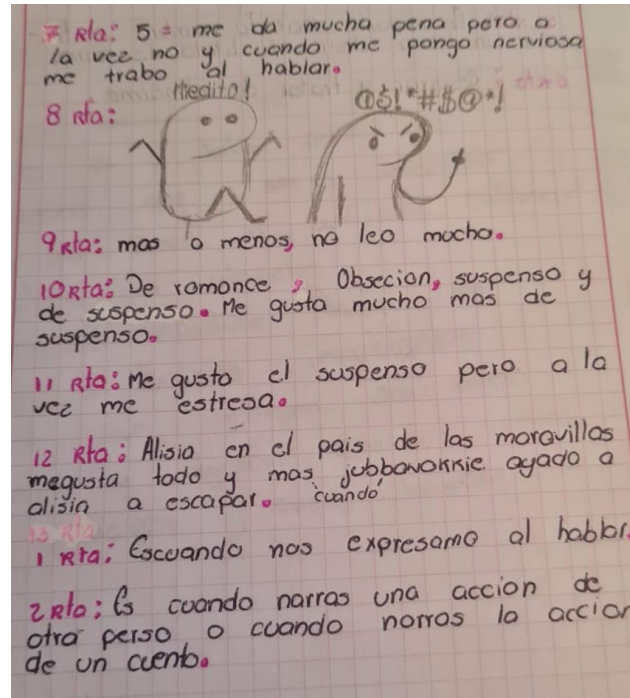 7 Rta: 5 = me da mucha pena pero a
la vez no y cuando me pongo nerviosa
me trabo al hablar.
Miedito! @$!*#$@*!
8 Rta:
9 Rta: mas o menos, no leo mucho.
10 Rta: De romance, Obsecion, suspenso y
de suspenso. Me gusta mucho mas de
suspenso.
11 Rta: Me gusta el suspenso pero a la
vez me estresa.
12 Rta: Alisia en el pais de las maravillas
megusta todo y mas jubbavokkie. ayado a
alisia a escapar. cuando
13 Rta
1 Rta: Escuando nos expresamo al hablar.
2 Rta: Es cuando narras una accion de
otra perso o cuando narras la accion
de un cuento.